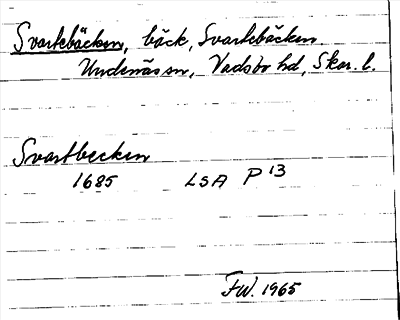 Svartebäcken, bäck, Svartebäcken
Undenäs sn, Vadsbo hd, Skar. l.
Svartbecken
1685 LSA P 13
FW. 1965